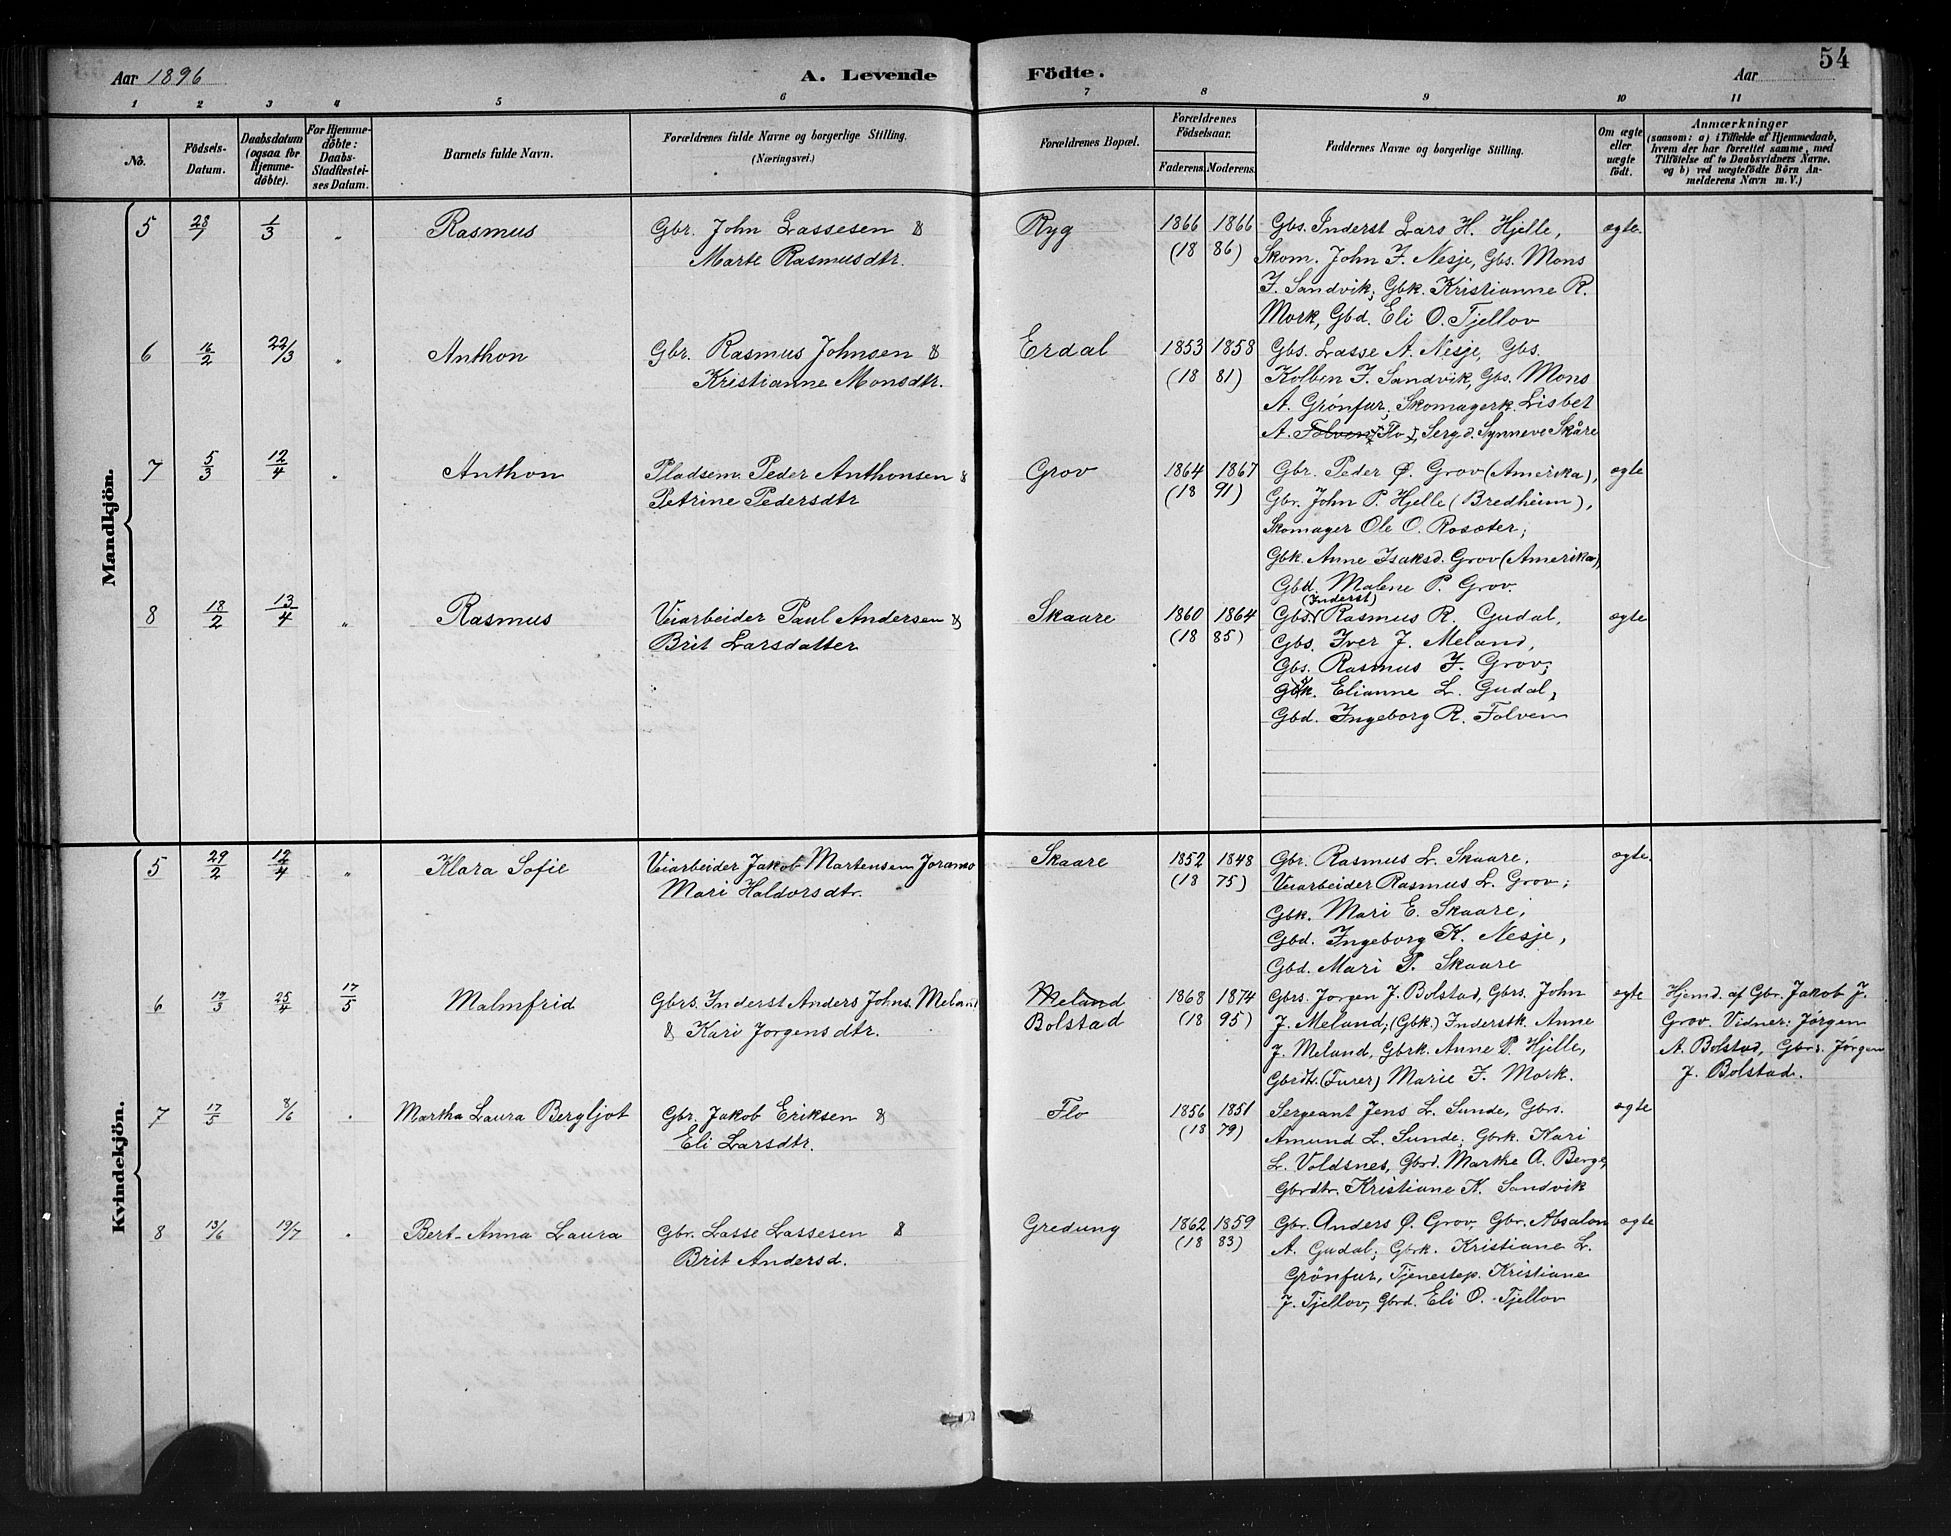 54
Aar 1896
A. Levende
Födte.
Aar
1 2 3 4 5 6 7 8 9 10 11
No.
Födsels-
Datum.
Daabsdatum
(ogsaa for
Hjemme-
döbte).
For Hjemme-
döbte:
Daabs-
Stadfæstel-
ses Datum.
Barnets fulde Navn.
Forældrenes fulde Navne og borgerlige Stilling.
(Næringsvei.)
Forældrenes Bopæl.
Forældrenes
Födselsaar.
Faderens. Moderens.
Faddernes Navne og borgerlige Stilling.
Om ægte
eller
uægte
födt.
Anmærkninger
(saasom: a) i Tilfælde af Hjemmedaab,
hvem der har forrettet samme, med
Tilföielse af to Daabsvidners Navne.
og b) ved uægtefödte Börn An-
melderens Navn m. V.)
Mandkjön.
5 28/1 1/3 " Rasmus Gbr. John Lassesen & Ryg 1866 1866 Gbs. Inderst Lars H. Hjelle, ægte.
Marte Rasmusdtr. (18 86) Skom. John J. Nesje, Gbs. Mons
J. Sandvik, Gbk. Kristianne R.
Mork, Gbd. Eli O. Tjellov
6 16/2 22/3 " Anthon Gbr. Rasmus Johnsen & Erdal 1853 1858 Gbs. Lasse A. Nesje, Gbs.
Kristianne Monsdtr. (18 81) Kolben J. Sandvik, Gbs. Mons
A. Grönfur, Skomagerk. Lisbet
A. Folven Flo, Serg.d. Synneve Skåre
7 5/3 12/4 " Anthon Pladsem. Peder Anthonsen & Grov 1864 1867 Gbr. Peder Ø. Grov (Amerika), ægte
Petrine Pedersdtr (18 91) Gbr. John P. Hjelle (Bredheim),
Skomager Ole O. Rosæter;
Gbk. Anne Isaksd. Grov (Amerika),
Gbd. Malene P. Grov.
(Inderst)
8 18/2 13/4 " Rasmus Veiarbeider Paul Andersen & Skaare 1860 1864 Gbs. Rasmus R. Gudal, ægte
Brit Larsdatter (18 85) Gbs. Iver J. Meland,
Gbs. Rasmus J. Grov;
Gbk. Elianne L. Gudal,
Gbd. Ingeborg R. Folven
Kvindekjön.
5 29/2 12/4 " Klara Sofie Veiarbeider Jakob Martensen Joramo Skaare 1852 1848 Gbr. Rasmus L. Skaare, ægte.
Mari Haldorsdtr. (18 75) Veiarbeider Rasmus L. Grov;
Gbk. Mari E. Skaare,
Gbd. Ingeborg K. Nesje,
Gbd. Mari P. Skaare
6 17/3 25/4 17/5 Malmfrid Gbrs. Inderst Anders Johns. Meland Meland 1868 1874 Gbrs. Jorgen J. Bolstad, Gbrs. John ægte Hjemd. af Gbr. Jakob J.
& Kari Jorgensdtr. Bolstad (18 95) J. Meland; (Gbk.) Inderstk. Anne Grov. Vidner: Jörgen
J. Meland, Gbrk. Anne P. Hjelle, A. Bolstad, Gbrs. Jörgen
(Furer) Marie J. Mork. J. Bolstad.
7 17/5 8/6 " Martha Laura Bergljot Gbr. Jakob Eriksen & Flo 1856 1851 Sergeant Jens L. Sunde, Gbrs. ægte
Eli Larsdtr. (18 79) Amund L. Sunde; Gbrk. Kari
L. Voldsnes, Gbrd. Marthe A. Berge,
Gbrdtr. Kristiane K. Sandvik
8 13/6 19/7 " Bert-Anna Laura Gbr. Lasse Lassesen & Gredung 1862 1859 Gbr. Anders Ø. Grov, Gbr. Absalon ægte
Brit Andersd. (18 83) A. Gudal; Gbrk. Kristiane L.
Grönfur, Tjenestep. Kristiane
J. Tjellov, Gbrd. Eli O. Tjellov